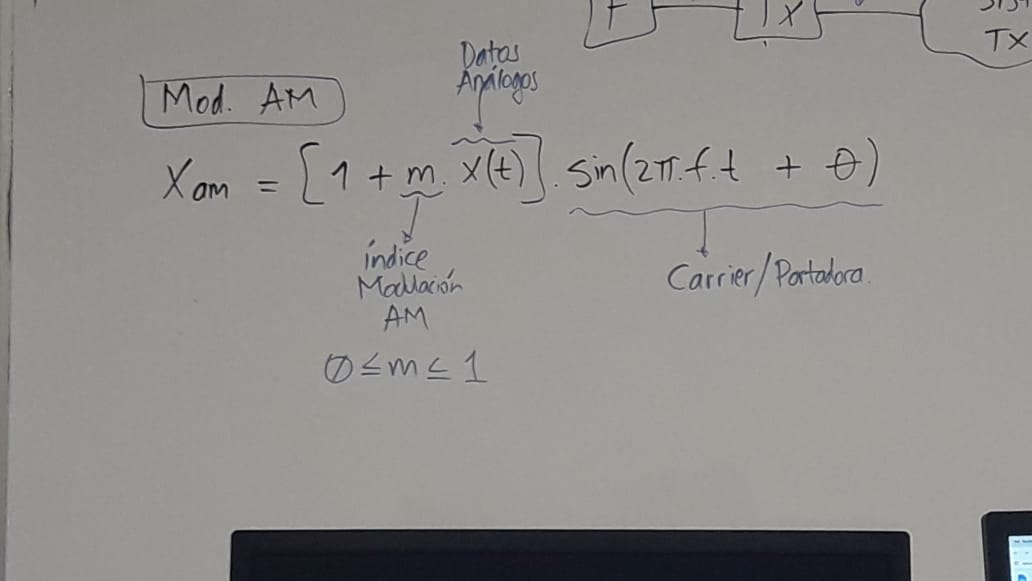 F
TX
TX
Datos
Análogos
Mod. AM
Xam = [1 + m. x(t)]. sin(2π.f.t + θ)
índice
Modulación
AM
Carrier/Portadora.
0 ≤ m ≤ 1